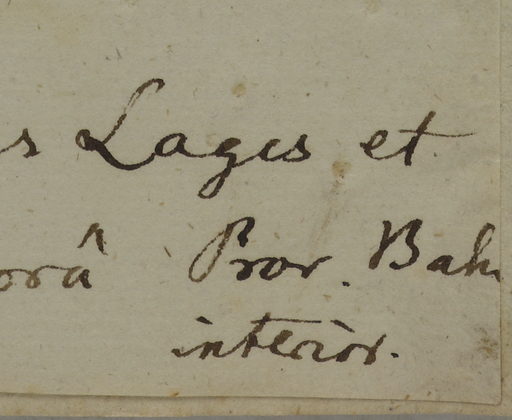 s Lages et
orâ Prov. Bah
interior.